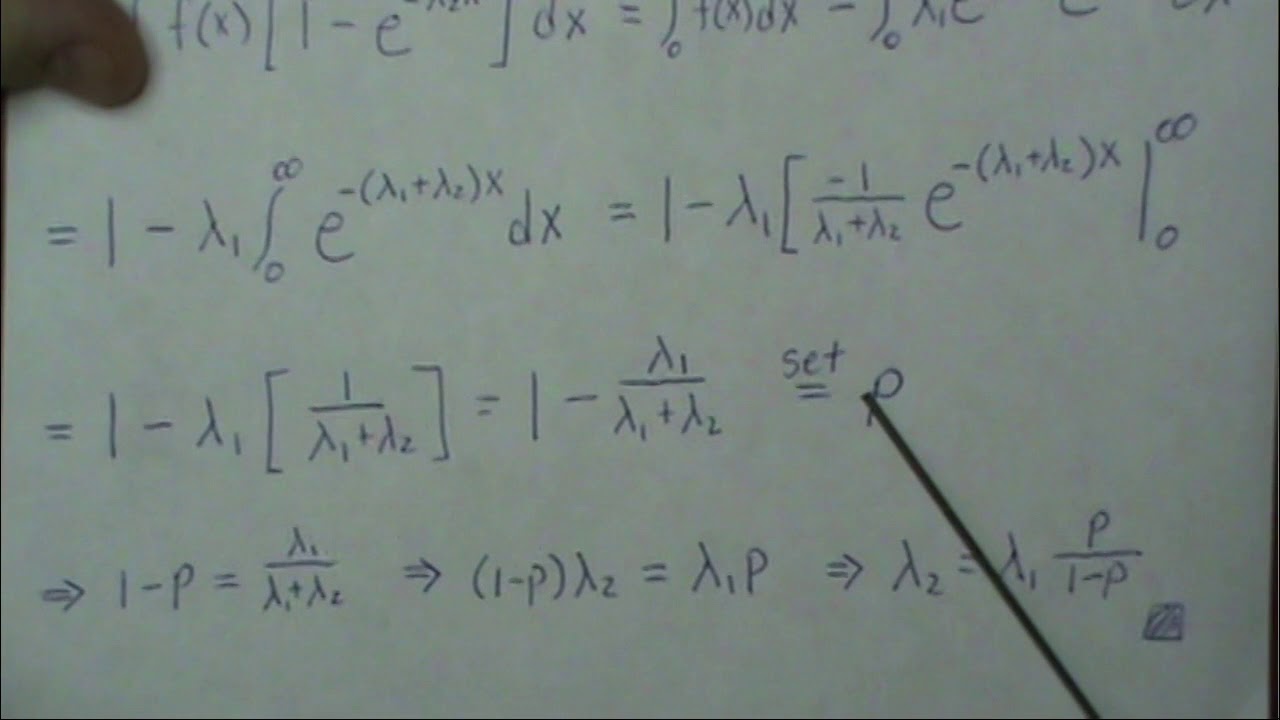 f(x) [1 - e^{-λ₂x}] dx = ∫₀ f(x)dx - ∫₀ λ₁e e dx
= 1 - λ₁ ∫₀^∞ e^{-(λ₁+λ₂)x} dx = 1 - λ₁ [ \frac{-1}{λ₁+λ₂} e^{-(λ₁+λ₂)x} |₀^∞
= 1 - λ₁ [ \frac{1}{λ₁+λ₂} ] = 1 - \frac{λ₁}{λ₁+λ₂} \stackrel{set}{=} p
⇒ 1-p = \frac{λ₁}{λ₁+λ₂} ⇒ (1-p)λ₂ = λ₁p ⇒ λ₂ = λ₁ \frac{p}{1-p}